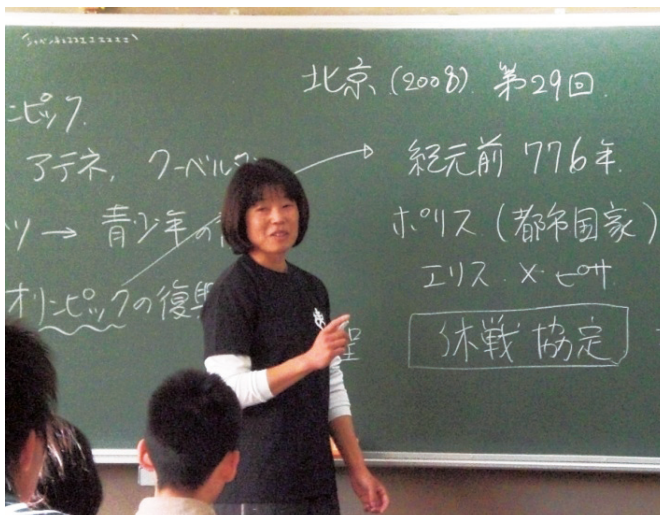 北京(2008). 第29回.
ンピック.
アテネ, クーベルタ
紀元前 776年.
ツ → 青少年の
ポリス (都市国家)
エリス × ピサ
オリンピックの復興
休戦協定